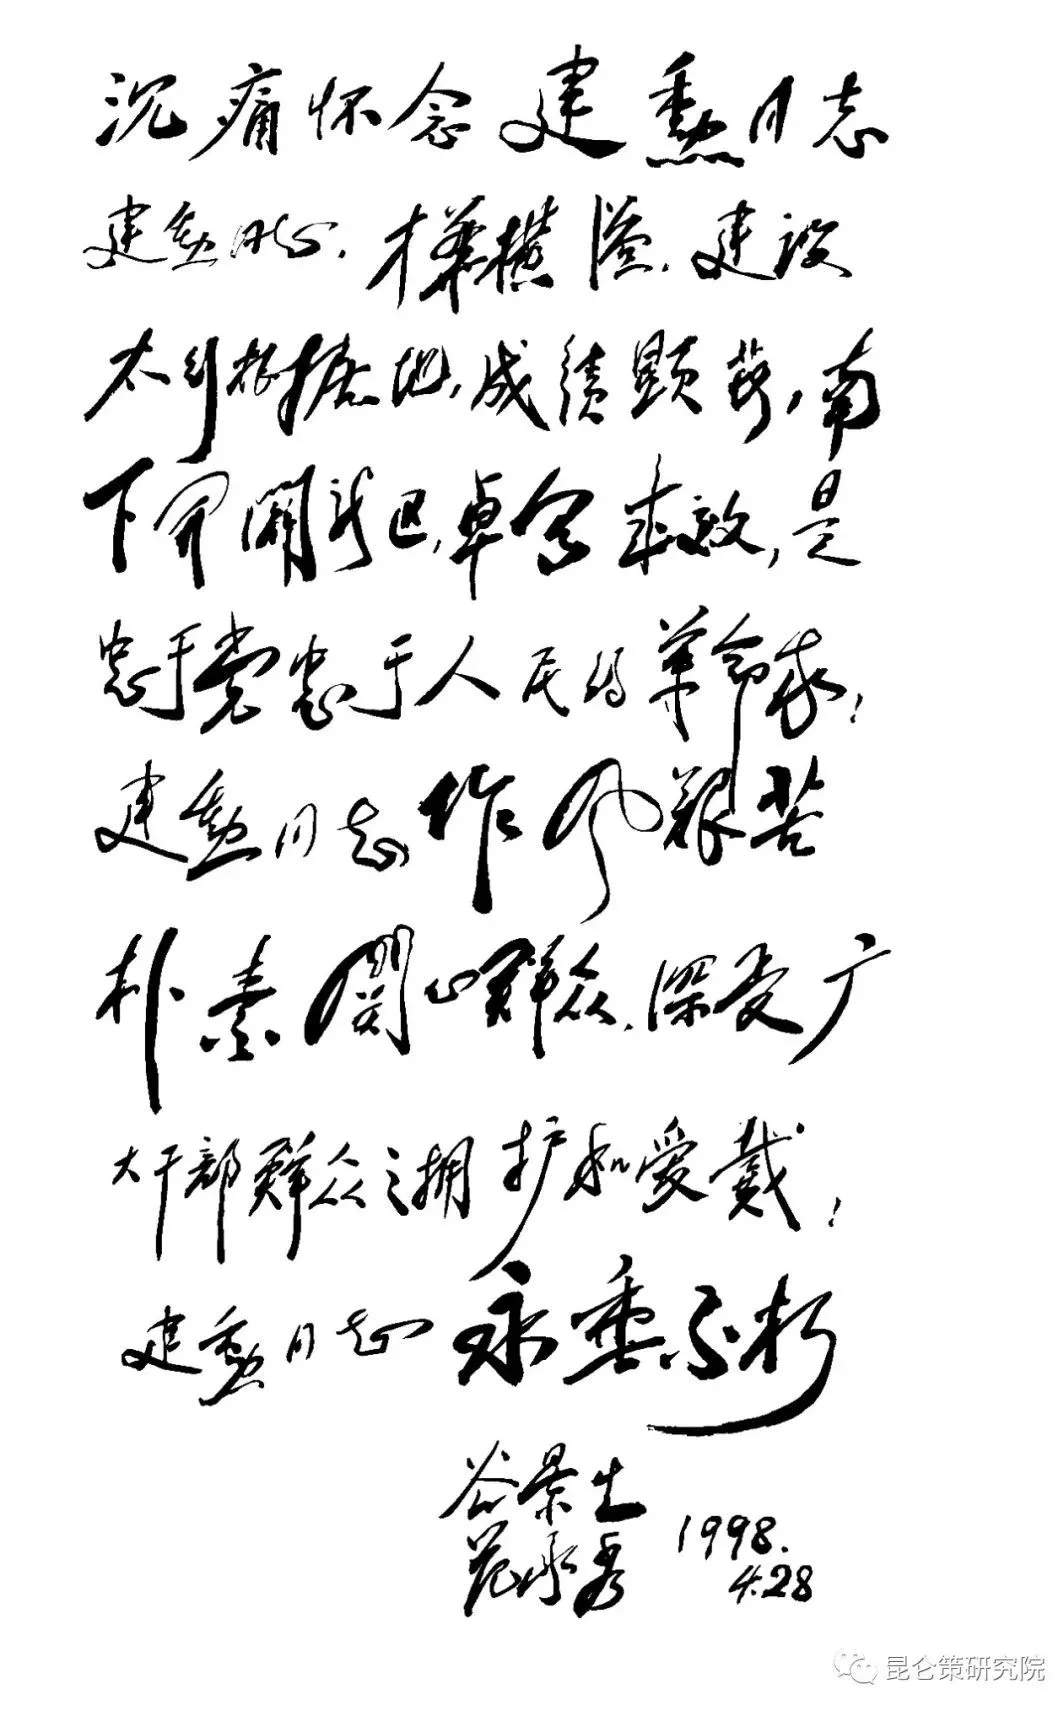 沉痛怀念建勳同志
建勳同志,才華横溢,建设
太行根据地,成绩顕著,南
下開闢新区,卓有成效,是
忠于党忠于人民的革命家!
建勳同志作风艰苦
朴素関心群众,深受广
大干部群众之拥护和爱戴!
建勳同志永垂不朽
谷景生
范承秀
1998.
4.28
昆仑策研究院